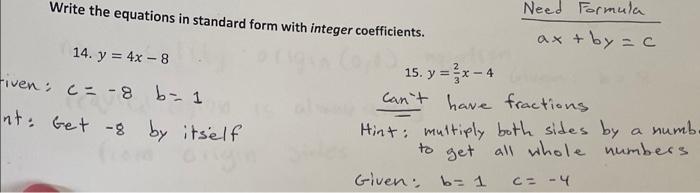 Write the equations in standard form with integer coefficients.
Need Formula
ax + by = c
14. y = 4x − 8
15. y = 2/3x − 4
iven: c = -8 b = 1
can't have fractions
nt: Get -8 by itself
Hint: multiply both sides by a numb
to get all whole numbers
Given: b = 1 c = -4